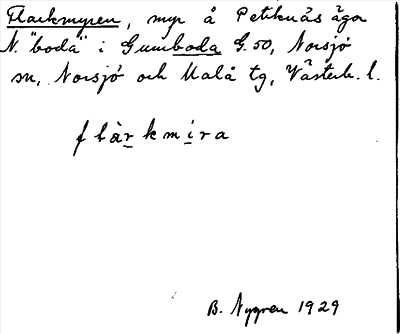 Flarkmyren, myr å Petiknäs äga
N. "boda" i Gumboda G. 50, Norsjö
sn, Norsjö och Malå tg, Västerb. l.
flàrkmira
B. Nygren 1929